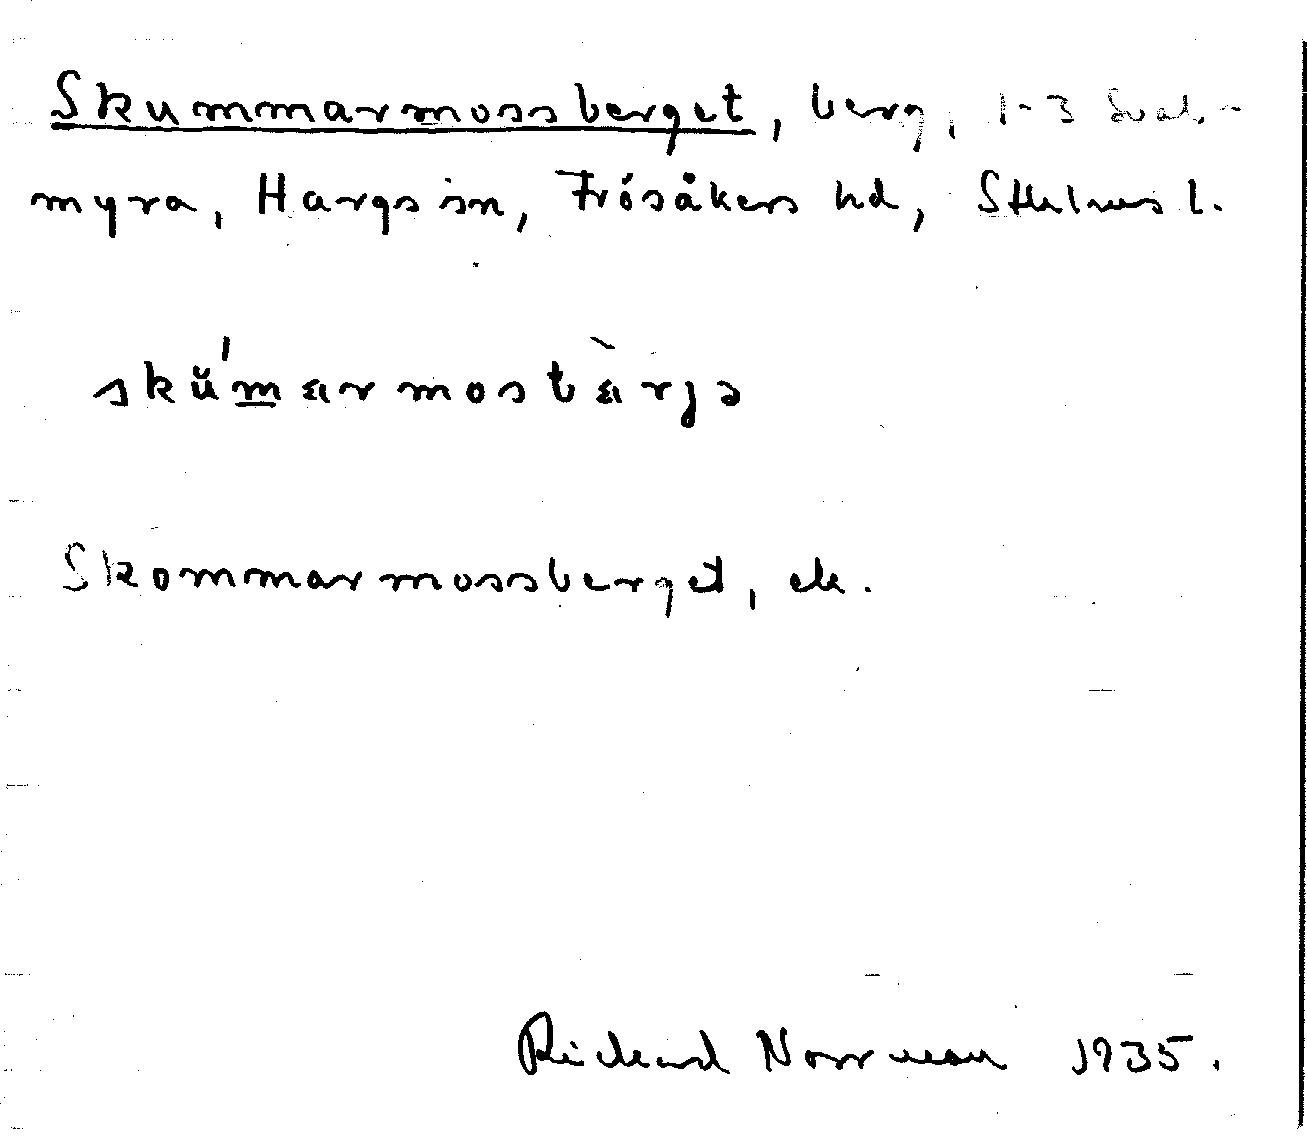 Skummarmossberget, berg, 1-3 Sval-
myra, Hargs sn, Frösåkers hd, Sthlms l.
skŭ´marmostàrjə
Skommarmossberget, ek.
Richard Norrman 1935.